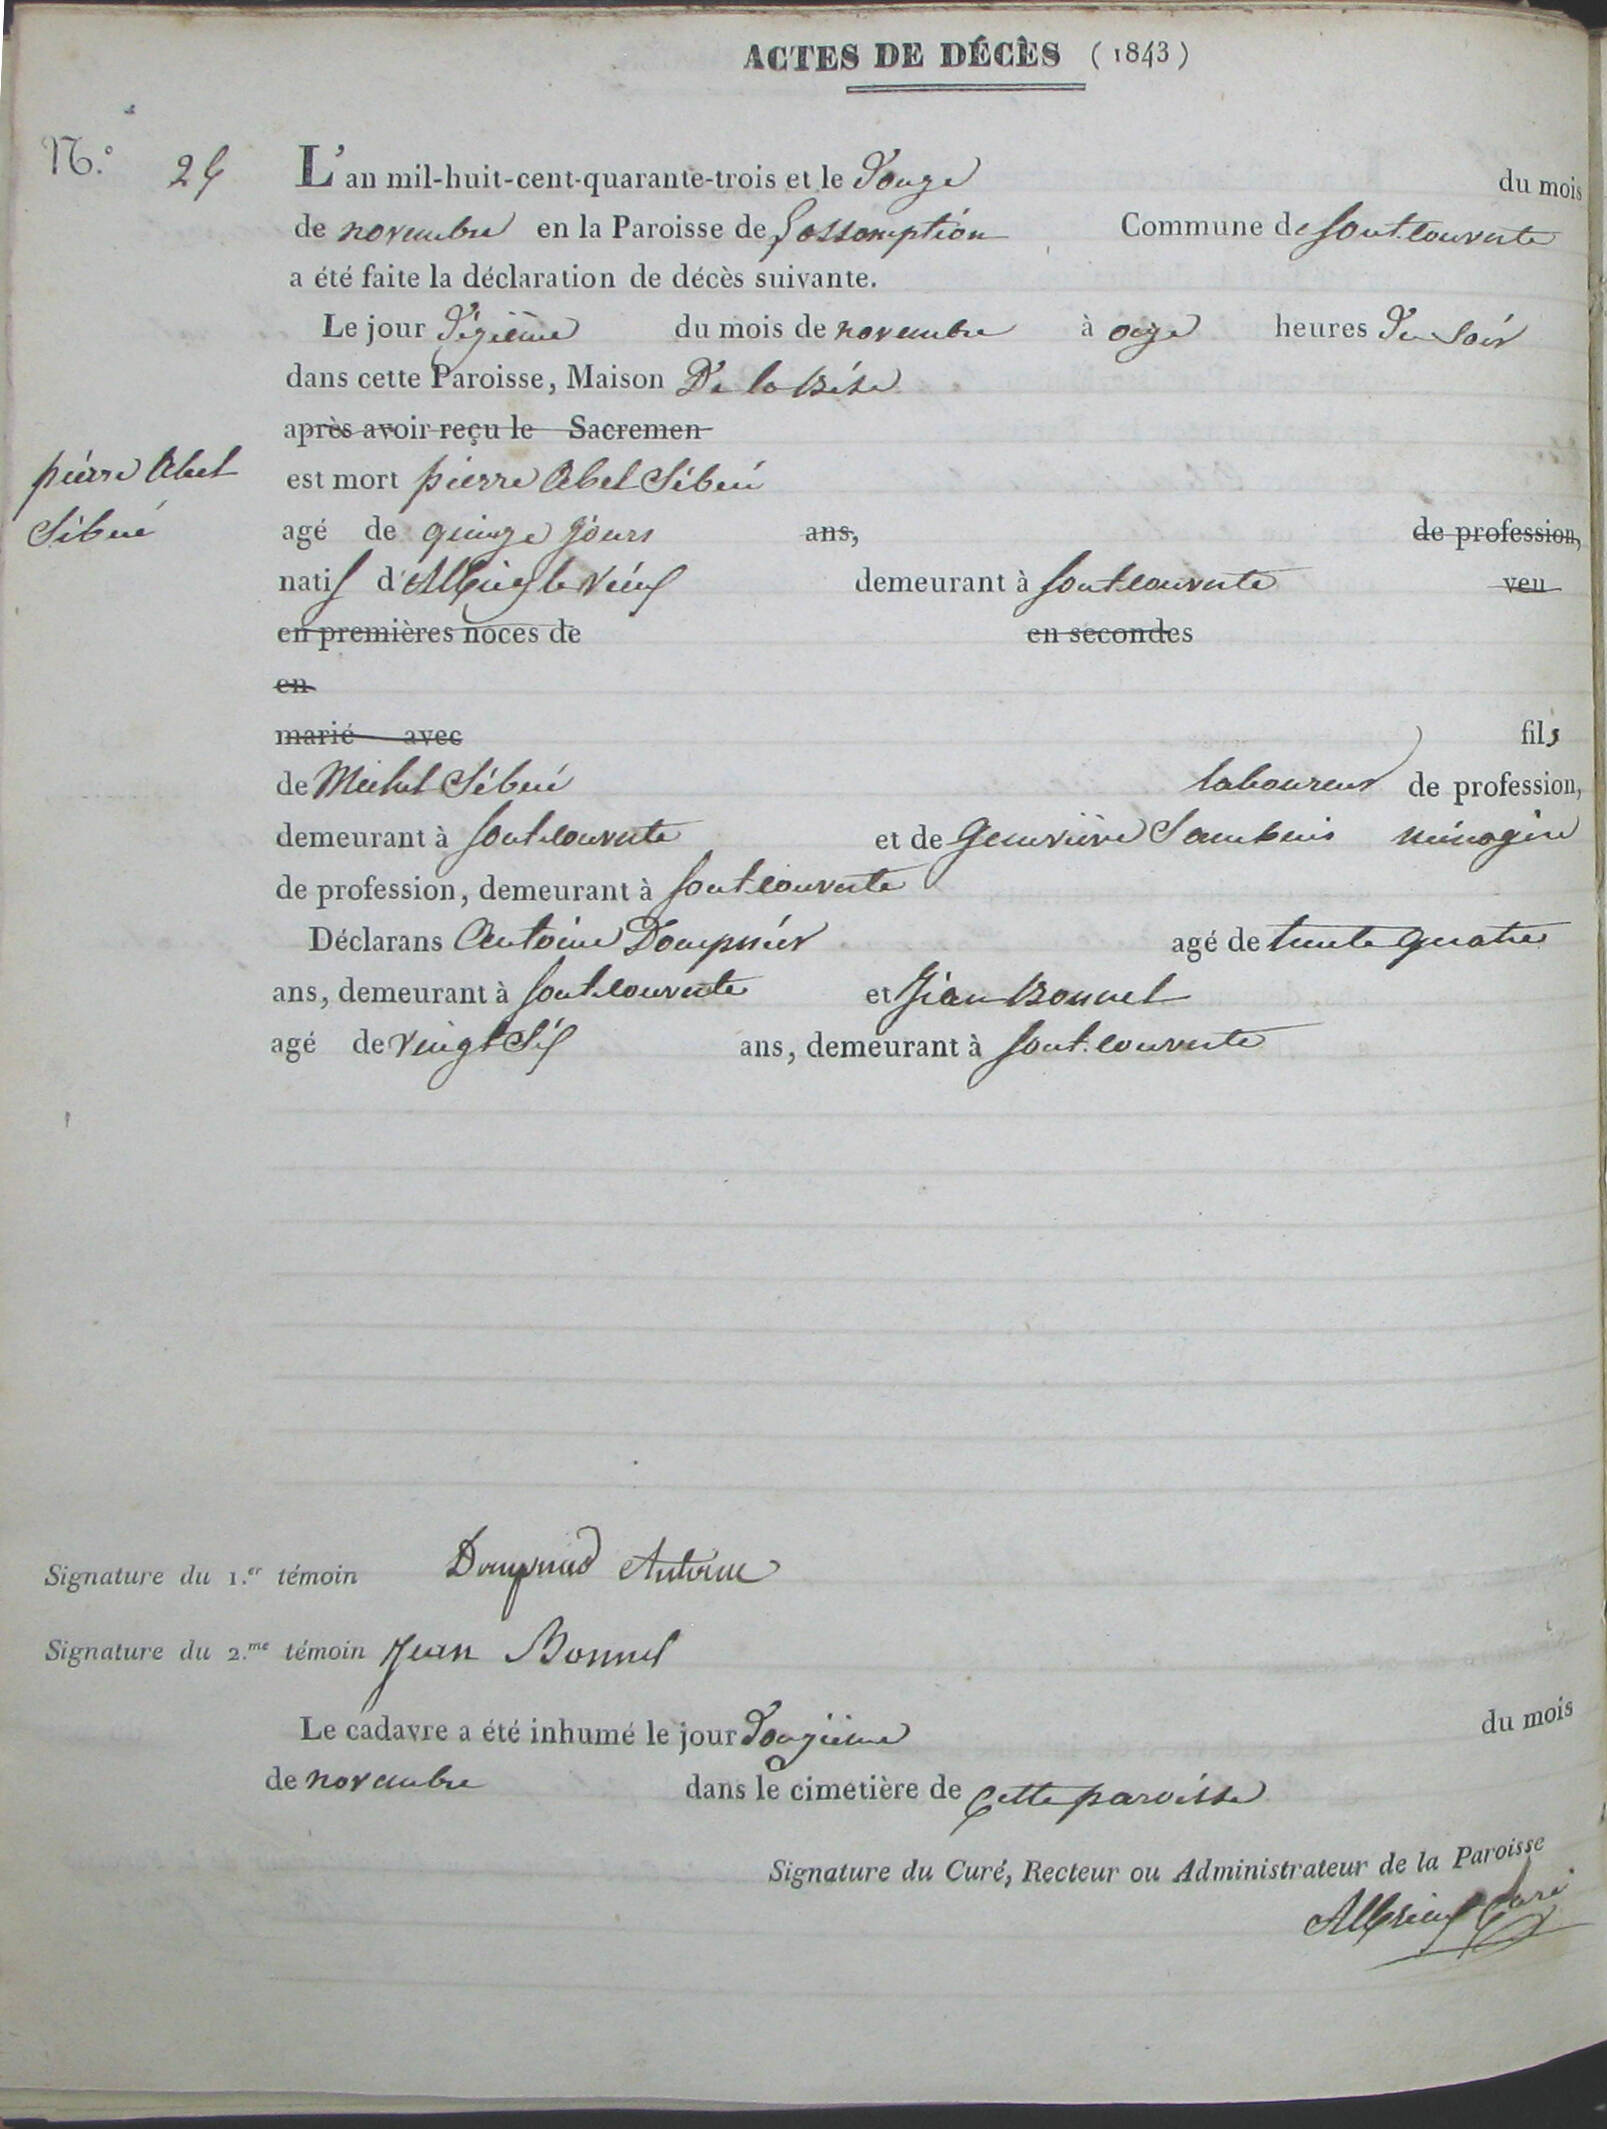 ACTES DE DÉCÈS (1843)
N.º 24 L'an mil-huit-cent-quarante-trois et le Douze du mois
de novembre en la Paroisse de L'assomption Commune de fontcouverte
a été faite la déclaration de décès suivante.
Le jour Dizième du mois de novembre à onze heures Du Soir
dans cette Paroisse, Maison De la
après avoir reçu le Sacremen
pierre Abel est mort pierre Abel Sibué
Sibué agé de quinze jours ans, de profession,
natif d'Albiez le vieux demeurant à fontcouverte veu
en premières noces de en secondes
en
marié avec fils
de Michel Sibué laboureur de profession,
demeurant à fontcouverte et de Geneviève Sambuis ménagère
de profession, demeurant à fontcouverte
Déclarans Antoine Dompnier agé de trente quatre
ans, demeurant à fontcouverte et Jean Bonnel
agé de vingt Six ans, demeurant à fontcouverte
Signature du 1.er témoin Dompnié Antoine
Signature du 2.me témoin Jean Bonnel
Le cadavre a été inhumé le jour Douzième du mois
de novembre dans le cimetière de Cette paroisse
Signature du Curé, Recteur ou Administrateur de la Paroisse
Albrieux Curé